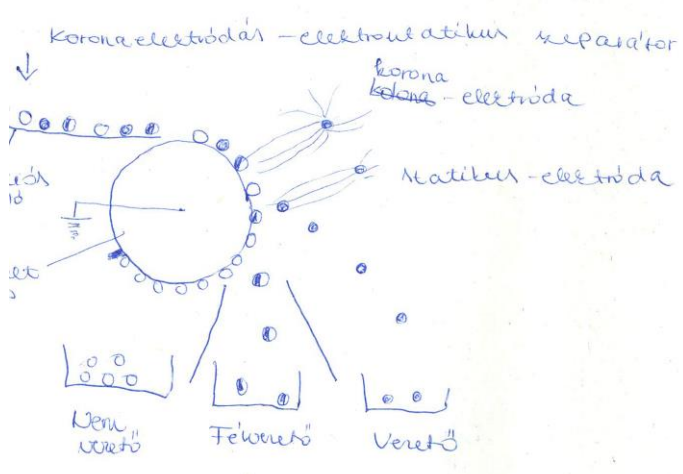 Koronaelektródás - elektrosztatikus szeparátor
korona
kolona - elektróda
statikus - elektróda
Nem
vezető
Félvezető
Vezető